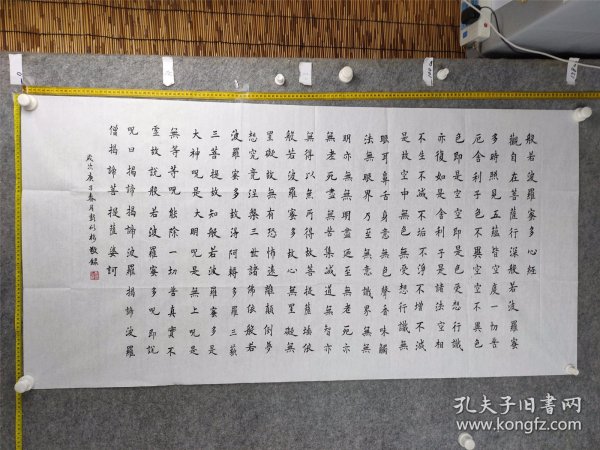 般若波羅蜜多心經
觀自在菩薩行深般若波羅蜜
多時照見五蘊皆空度一切苦
厄舍利子色不異空空不異色
色即是空空即是色受想行識
亦復如是舍利子是諸法空相
不生不滅不垢不淨不增不減
是故空中無色無受想行識無
眼耳鼻舌身意無色聲香味觸
法無眼界乃至無意識界無無
明亦無無明盡迺至無老死亦
無老死盡無苦集滅道無智亦
無得以無所得故菩提薩埵依
般若波羅蜜多故心無罣礙無
罣礙故無有恐怖遠離顛倒夢
想究竟涅槃三世諸佛依般若
波羅蜜多故得阿耨多羅三藐
三菩提故知般若波羅蜜多是
大神呪是大明呪是無上呪是
無等等呪能除一切苦真實不
虛故說般若波羅蜜多呪即說
呪曰揭諦揭諦波羅揭諦波羅
僧揭諦菩提薩婆訶
歲次庚子春月敬錄
孔夫子旧书网
www.kongfz.com